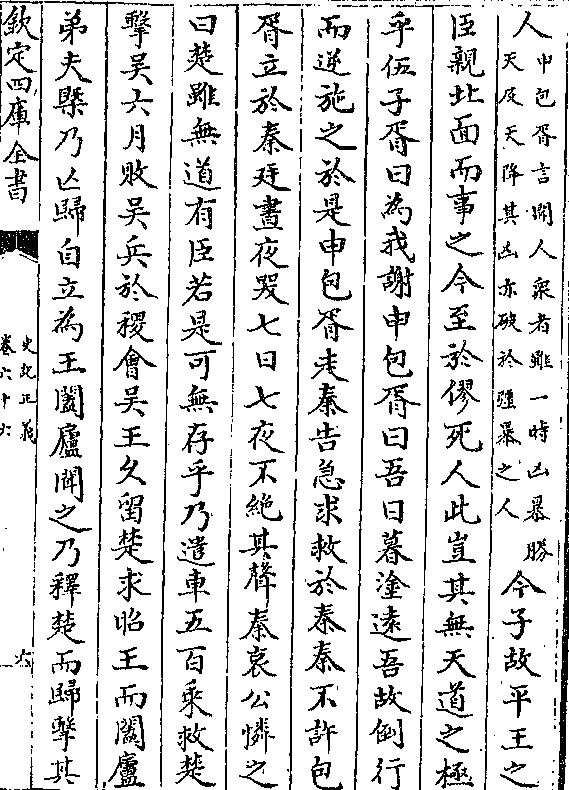 人申包胥言聞人衆者雖一時凶暴勝
天及天降其凶亦破於彊暴之人今子故平王之
臣親北面而事之今至於僇死人此豈其無天道之極
乎伍子胥曰為我謝申包胥曰吾日暮塗逺吾故倒行
而逆施之於是申包胥走秦告急求救於秦秦不許包
胥立於秦廷晝夜哭七日七夜不絶其聲秦哀公憐之
曰楚雖無道有臣若是可無存乎乃遣車五百乘救楚
擊吳六月敗吳兵於稷會吳王久留楚求昭王而闔廬
弟夫槩乃亡歸自立為王闔廬聞之乃釋楚而歸擊其
欽定四庫全書
史記正義
卷六十六
六